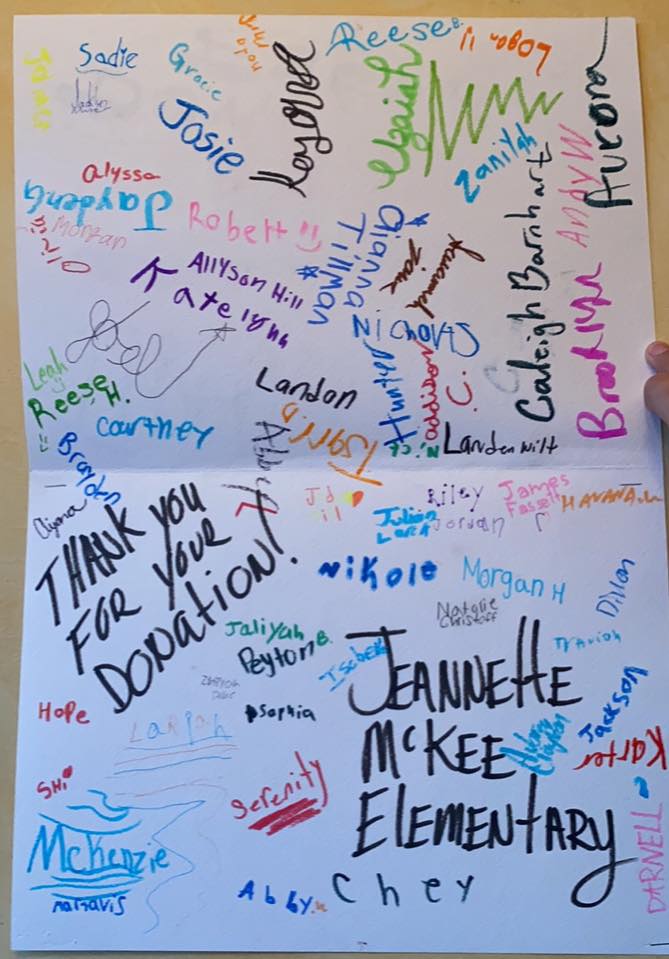 Sadie
Gracie
Reese B.
Logan
Josie
Kayona
Aurora
Zaniyah
Alyssa
Jayden G
Morgan
Robert
Gianna
Tillman
ANDY W
Caleigh Barnhart
Allyson Hill
Katelynn
Nicholas
Brooklyn
Hunter
addison
C.
Leah
Reese H.
Landon
Courtney
Landen Wilt
Brayden
Riley
James
Fassett
HAVANA
Julian
Lara
Jordan
THANK YOU
FOR YOUR
DONATION!
Nikole
Morgan H
Dillon
Natalie
Christoff
Jaliyah
Peyton B.
Travion
JEANNETTE
McKEE
ELEMENTARY
Hope
Sophia
Jackson
Karter
Shi
Serenity
McKenzie
DARNELL
matravis
Abby
Chey